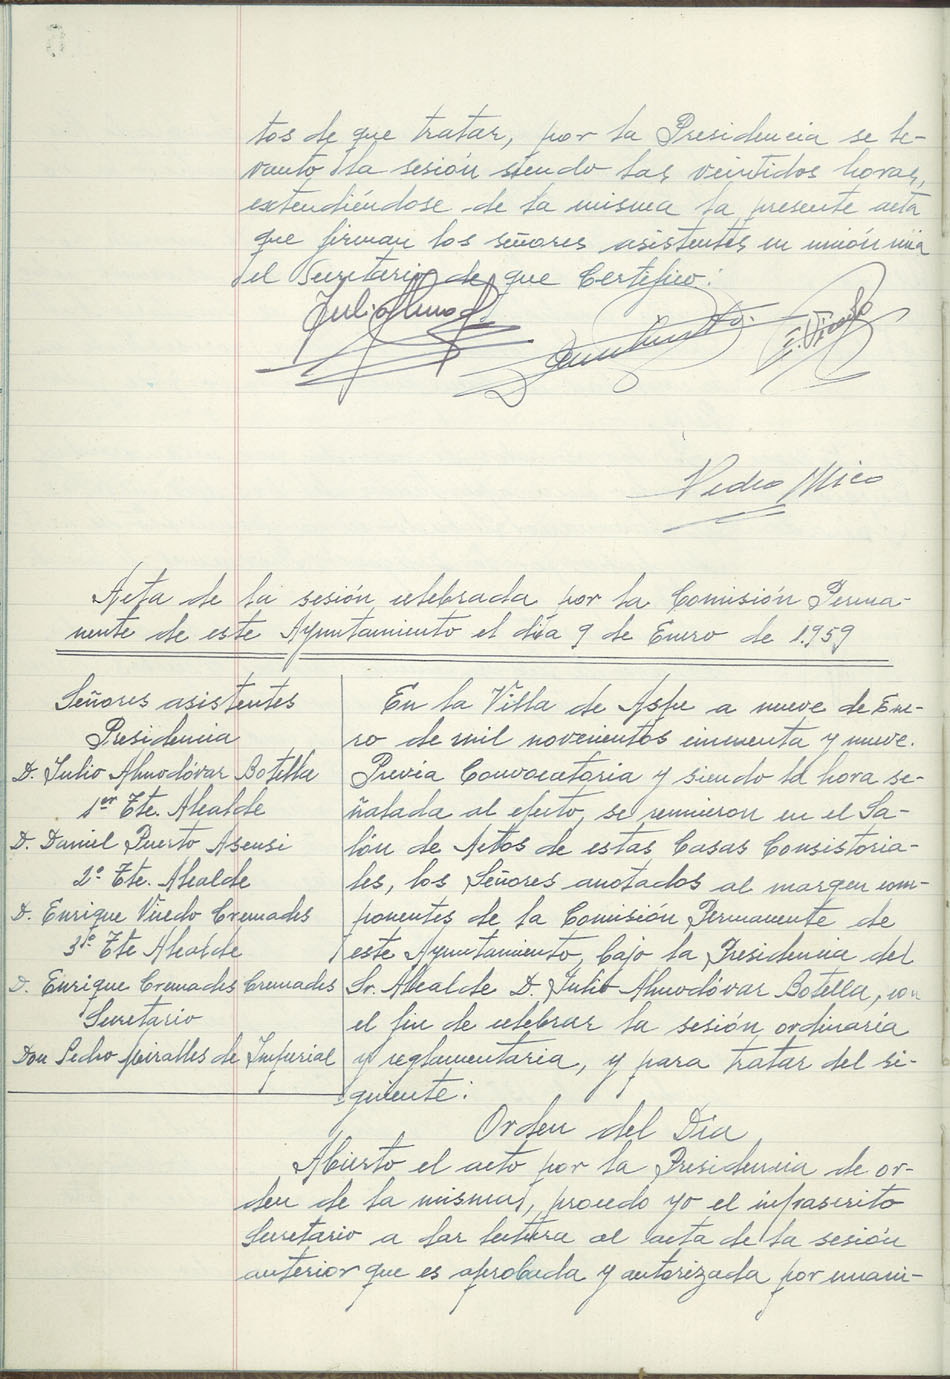 tos de que tratar, por la Presidencia se le-
vanto la sesión siendo las veintidos horas,
extendiéndose de la misma la presente acta
que firman los señores asistentes en unión mia
el Secretario de que Certifico:
Julio Almod.
E. Vicedo
Pedro Mico
Acta de la sesión celebrada por la Comisión Perma-
nente de este Ayuntamiento el día 9 de Enero de 1.959
Señores asistentes
Presidencia
D. Julio Almodóvar Botella
1er Tte. Alcalde
D. Daniel Puerto Asensi
2º Tte. Alcalde
D. Enrique Vicedo Cremades
3º Tte Alcalde
D. Enrique Cremades Cremades
Secretario
Don Pedro Miralles de Imperial
En la Villa de Aspe a nueve de Ene-
ro de mil novecientos cincuenta y nueve.
Previa Convocatoria y siendo la hora se-
ñalada al efecto, se reunieron en el Sa-
lón de Actos de estas Casas Consistoria-
les, los Señores anotados al margen com-
ponentes de la Comisión Permanente de
este Ayuntamiento, bajo la Presidencia del
Sr. Alcalde D. Julio Almodóvar Botella, con
el fin de celebrar la sesión ordinaria
y reglamentaria, y para tratar del si-
guiente:
Orden del Dia
Abierto el acto por la Presidencia de or-
den de la misma, procedo yo el infrascrito
Secretario a dar lectura al acta de la sesión
anterior que es aprobada y autorizada por unani-